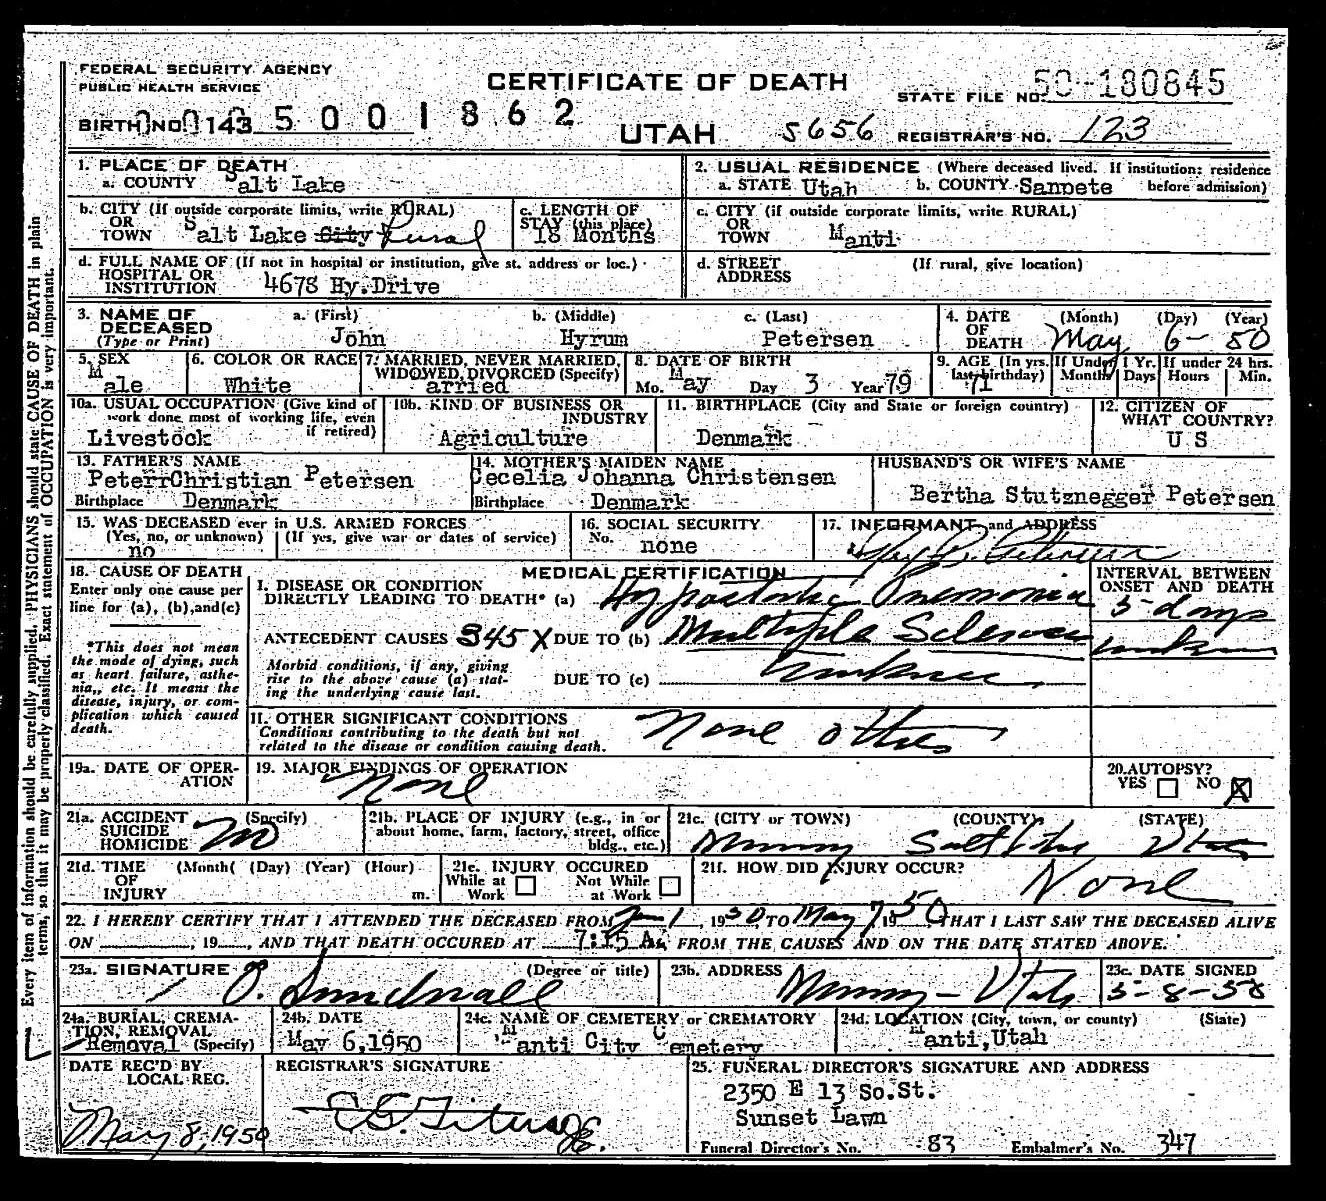 FEDERAL SECURITY AGENCY
PUBLIC HEALTH SERVICE
CERTIFICATE OF DEATH
STATE FILE NO. 50-180845
BIRTH NO. 143 5001862
UTAH 5656 REGISTRAR'S NO. 123
1. PLACE OF DEATH
a. COUNTY Salt Lake
2. USUAL RESIDENCE (Where deceased lived. If institution: residence before admission)
a. STATE Utah b. COUNTY Sanpete
b. CITY (If outside corporate limits, write RURAL)
OR TOWN Salt Lake City Rural
c. LENGTH OF STAY (this place)
18 Months
c. CITY (if outside corporate limits, write RURAL)
OR TOWN Manti
d. FULL NAME OF (If not in hospital or institution, give st. address or loc.)
HOSPITAL OR INSTITUTION 4678 Hy.Drive
d. STREET ADDRESS (If rural, give location)
3. NAME OF DECEASED (Type or Print)
a. (First) b. (Middle) c. (Last)
John Hyrum Petersen
4. DATE OF DEATH (Month) (Day) (Year)
May 6- 50
5. SEX
Male
6. COLOR OR RACE
White
7. MARRIED, NEVER MARRIED, WIDOWED, DIVORCED (Specify)
arried
8. DATE OF BIRTH
Mo. May Day 3 Year 79
9. AGE (In yrs. last birthday)
71
If Under 1 Yr. Months Days
If under 24 hrs. Hours Min.
10a. USUAL OCCUPATION (Give kind of work done most of working life, even if retired)
Livestock
10b. KIND OF BUSINESS OR INDUSTRY
Agriculture
11. BIRTHPLACE (City and State or foreign country)
Denmark
12. CITIZEN OF WHAT COUNTRY?
U S
13. FATHER'S NAME
PeterrChristian Petersen
Birthplace Denmark
14. MOTHER'S MAIDEN NAME
Cecelia Johanna Christensen
Birthplace Denmark
HUSBAND'S OR WIFE'S NAME
Bertha Stutznegger Petersen
15. WAS DECEASED ever in U.S. ARMED FORCES
(Yes, no, or unknown) (If yes, give war or dates of service)
no
16. SOCIAL SECURITY No.
none
17. INFORMANT and ADDRESS
18. CAUSE OF DEATH
Enter only one cause per line for (a), (b),and(c)
*This does not mean the mode of dying, such as heart failure, asthenia,, etc. It means the disease, injury, or complication which caused death.
MEDICAL CERTIFICATION
INTERVAL BETWEEN ONSET AND DEATH
I. DISEASE OR CONDITION DIRECTLY LEADING TO DEATH* (a) Hypostatic Pnemonia
5-days
ANTECEDENT CAUSES 345X DUE TO (b) Multiple Sclerosis
Morbid conditions, if any, giving rise to the above cause (a) stating the underlying cause last.
DUE TO (c)
II. OTHER SIGNIFICANT CONDITIONS
Conditions contributing to the death but not related to the disease or condition causing death.
None other
19a. DATE OF OPERATION
19. MAJOR FINDINGS OF OPERATION
None
20. AUTOPSY?
YES NO X
21a. ACCIDENT SUICIDE HOMICIDE (Specify)
no
21b. PLACE OF INJURY (e.g., in or about home, farm, factory, street, office bldg., etc.)
21c. (CITY or TOWN) (COUNTY) (STATE)
Murray Salt Lake Utah
21d. TIME OF INJURY (Month( (Day) (Year) (Hour) m.
21e. INJURY OCCURED
While at Work Not While at Work
21f. HOW DID INJURY OCCUR?
None
22. I HEREBY CERTIFY THAT I ATTENDED THE DECEASED FROM Jan 1, 1950, TO May 7, 1950 THAT I LAST SAW THE DECEASED ALIVE
ON , 19 , AND THAT DEATH OCCURED AT 7:15 A. FROM THE CAUSES AND ON THE DATE STATED ABOVE.
23a. SIGNATURE (Degree or title)
O. Sundwall
23b. ADDRESS
Murray - Utah
23c. DATE SIGNED
5-8-50
24a. BURIAL, CREMATION, REMOVAL (Specify)
Removal
24b. DATE
May 6,1950
24c. NAME OF CEMETERY or CREMATORY
Manti City Cemetery
24d. LOCATION (City, town, or county) (State)
Manti,Utah
DATE REC'D BY LOCAL REG.
May 8, 1950
REGISTRAR'S SIGNATURE
25. FUNERAL DIRECTOR'S SIGNATURE AND ADDRESS
2350 E 13 So.St.
Sunset Lawn
Funeral Director's No. 83 Embalmer's No. 347
Every item of information should be carefully supplied. PHYSICIANS should state CAUSE OF DEATH in plain
terms, so that it may be properly classified. Exact statement of OCCUPATION is very important.